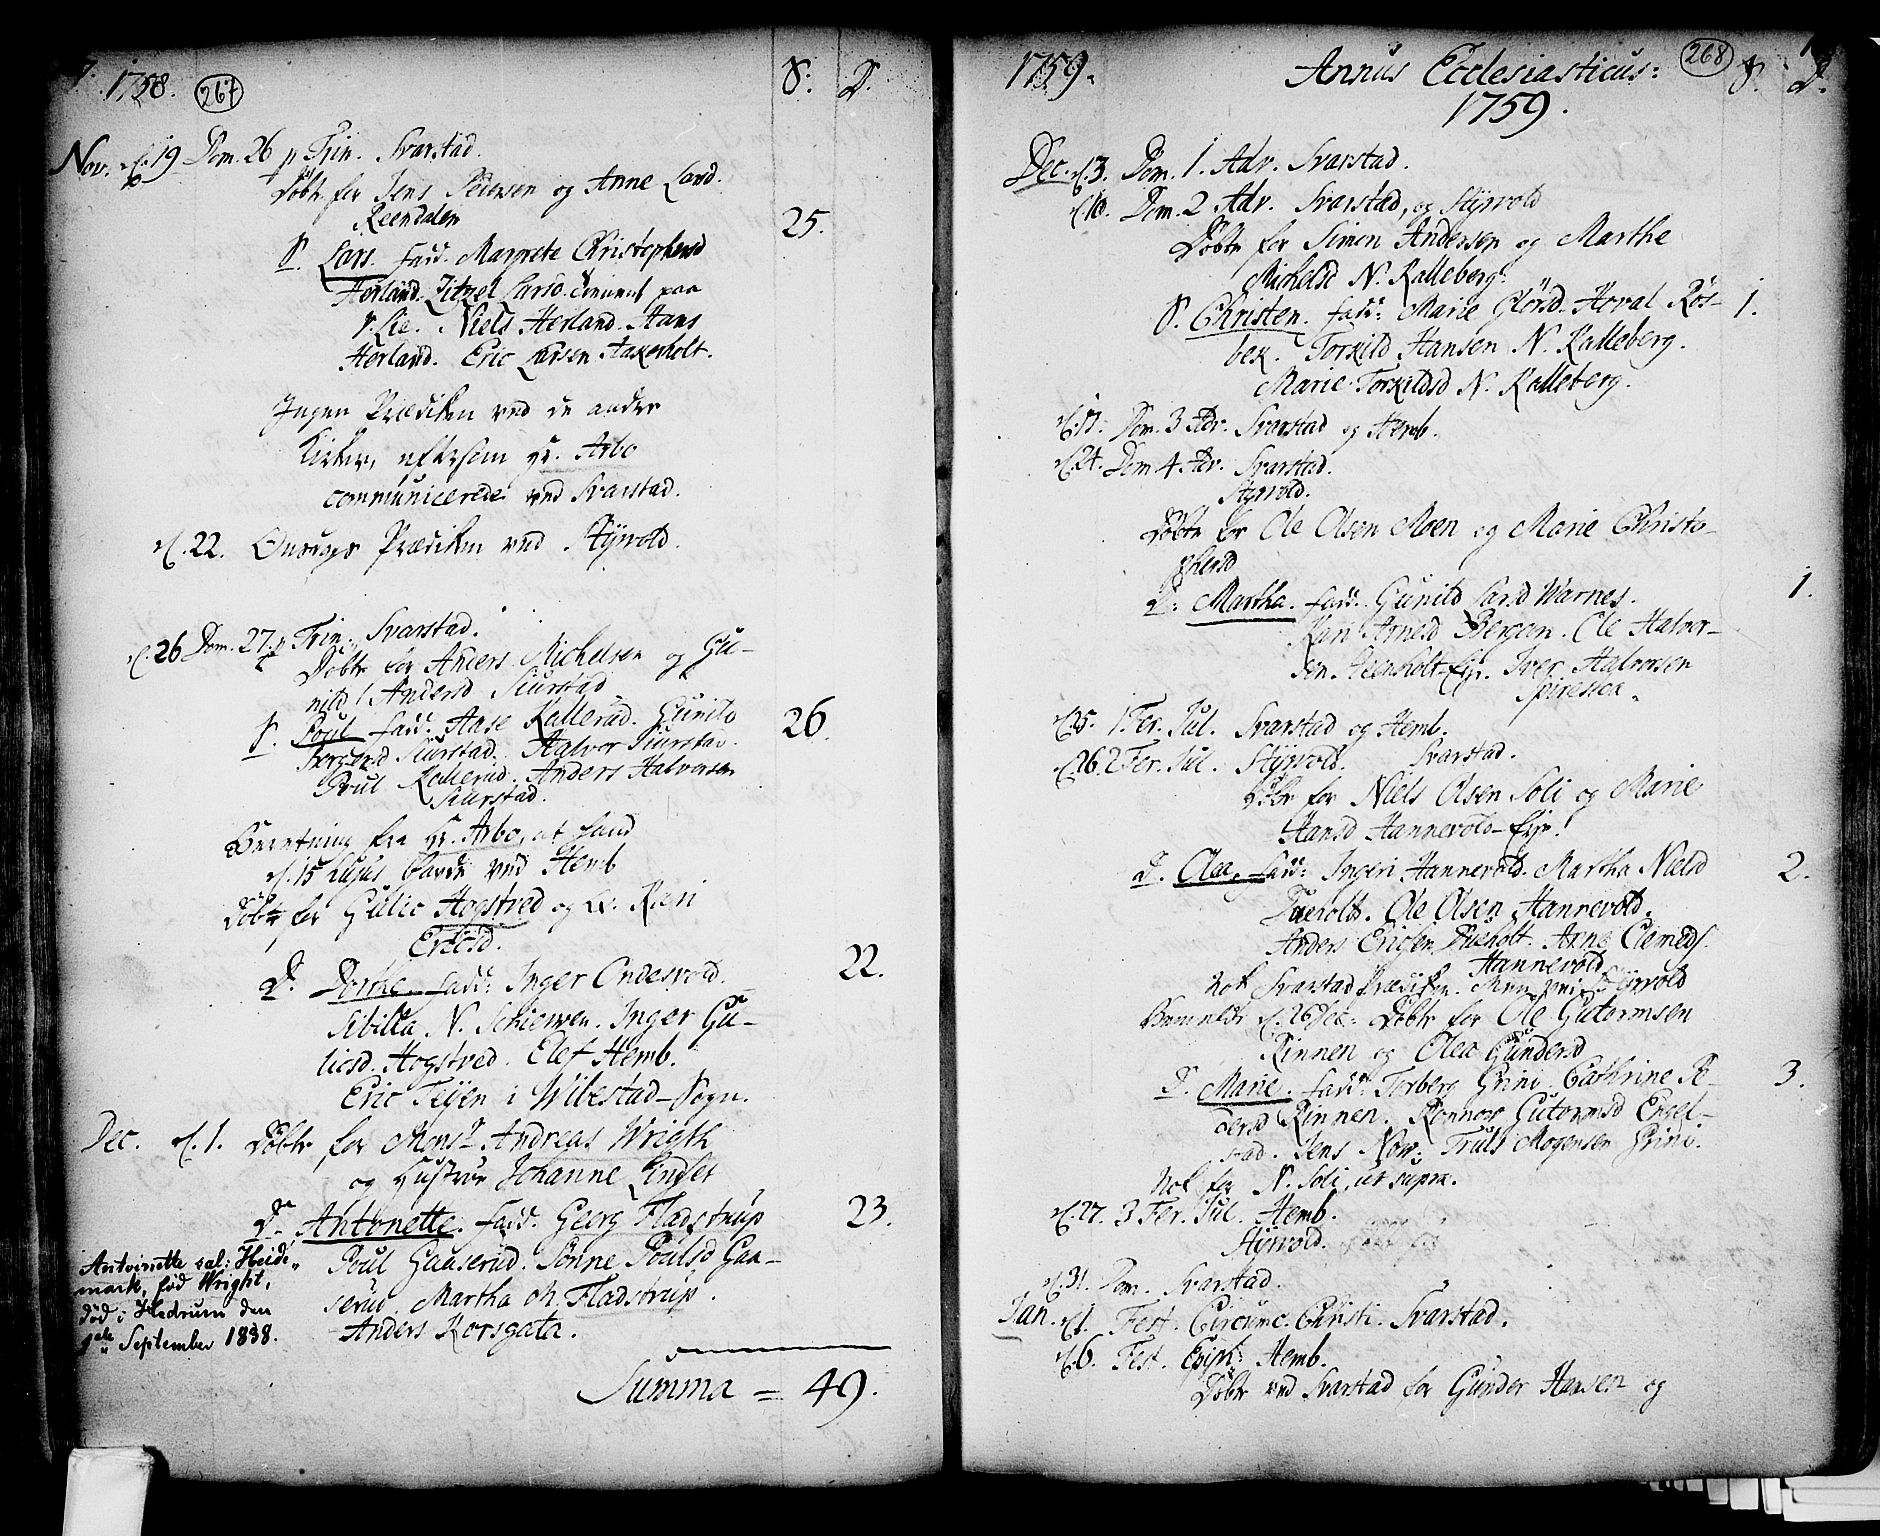 1758. 267 S: D.
Nov. d. 19 Dom. 26 p Trin. Svarstad.
Döbt for Jens Pedersen og Anne Larsd.
Reendalen
S. Lars. fadd. Margrete Christophersd 25.
Herland. Zitzel Larsd. tienent paa
S. Lie. Niels Herland. Hans
Herland. Eric Larsen Aakerholt.
Ingen Prædiken ved de andre
Kirker, eftersom Hr. Arbo
communicerede ved Svarstad.
d. 22. Onsdags Prædiken ved Styrvold.
d. 26 Dom. 27. p Trin. Svarstad.
Döbt for Anders Michelsen og Gu-
nild Andersd Siurstad
S. Poul fadd. Aase Kallerud. Gunild 26.
Siurstad. Halvor Siurstad.
Poul Kallerud. Anders Halvorsen
Siurstad.
Beretning fra Hr. Arbo, at hand
d. 15 hujus havde ved Hemb
Döbt for Gulic Hogstved og Kari
Ericsd.
D. Dorthe. fadd: Inger Ondesvold. 22.
Sibilla N. Schierven. Inger Gu-
licsd. Hogstved. Elef Hemb.
Eric Teyen i Wibestad-Sogn.
Dec. d. 1. Döbt for Monsr. Andreas Wrigth
og Hustrue Johanne Lindset
D. Antonette. fadd. Georg Fladstrup 23.
Poul Gaaserud. Sønne Poulsd Gaa-
serud. Martha Fladstrup.
Anders Korsgata.
Antoinette sal: Heide-
mark, fød Wright,
död i Hedrum den
1ste September 1838.
Summa = 49.
1759. Annus Ecclesiasticus: 268 S. D.
1759.
Dec. d. 3. Dom. 1. Adv. Svarstad.
d. 10. Dom. 2 Adv. Svarstad, og Styrvold
Döbt for Simon Andersen og Marthe
Michelsd N. Kalleberg.
S. Christen. fadd: Marie Glörsd. Horval Rös- 1.
bek. Torkild Hansen N. Kalleberg.
Marie Torkildsd N. Kalleberg.
d. 17. Dom. 3 Adv. Svarstad og Hemb.
d. 24. Dom 4 Adv. Svarstad.
Styrvold.
Döbt for Ole Olsen Moen og Marie Christo-
phersd
D: Martha. fadd. Gunild Larsd Warnes. 1.
Kari Arnesd Bergan. Ole Halvor-
sen Steenholt-Eje. Iver Halvorsen
Spiresen.
d. 25. 1. Fer. Jul. Svarstad og Hemb.
d. 26. 2 Fer. Jul. Styrvold. Svarstad.
Döbt for Niels Olsen Soli og Marie
Hansd Hannevold-Eje.
D. Olea. fadd: Ingeri Hannevold. Martha Nielsd 2.
Tueholt. Ole Olsen Hannevold.
Anders Ericsen Tueholt. Arne Clemeds.
Hannevold
Not Svarstad Prædiken. Styrvold
d. 26 Dec: Döbt for Ole Gutormsen
Rinnen og Olea Gundersd
D. Marie. fadd: Torberg Grini. Cathrine Pe- 3.
dersd Rinnen. Ronnov Gutormsd Engel-
stad. Jens Nov. Truls Mogensen Grini.
Not for N. Soli, ut supra.
d. 27. 3 Fer. Jul. Hemb.
Styrvold.
d. 31. Dom. Svarstad.
Jan. d. 1. Fest. Circumc. Christi. Svarstad.
d. 6. Fest. Epiph: Hemb.
Döbt ved Svarstad for Gunder Hansen og